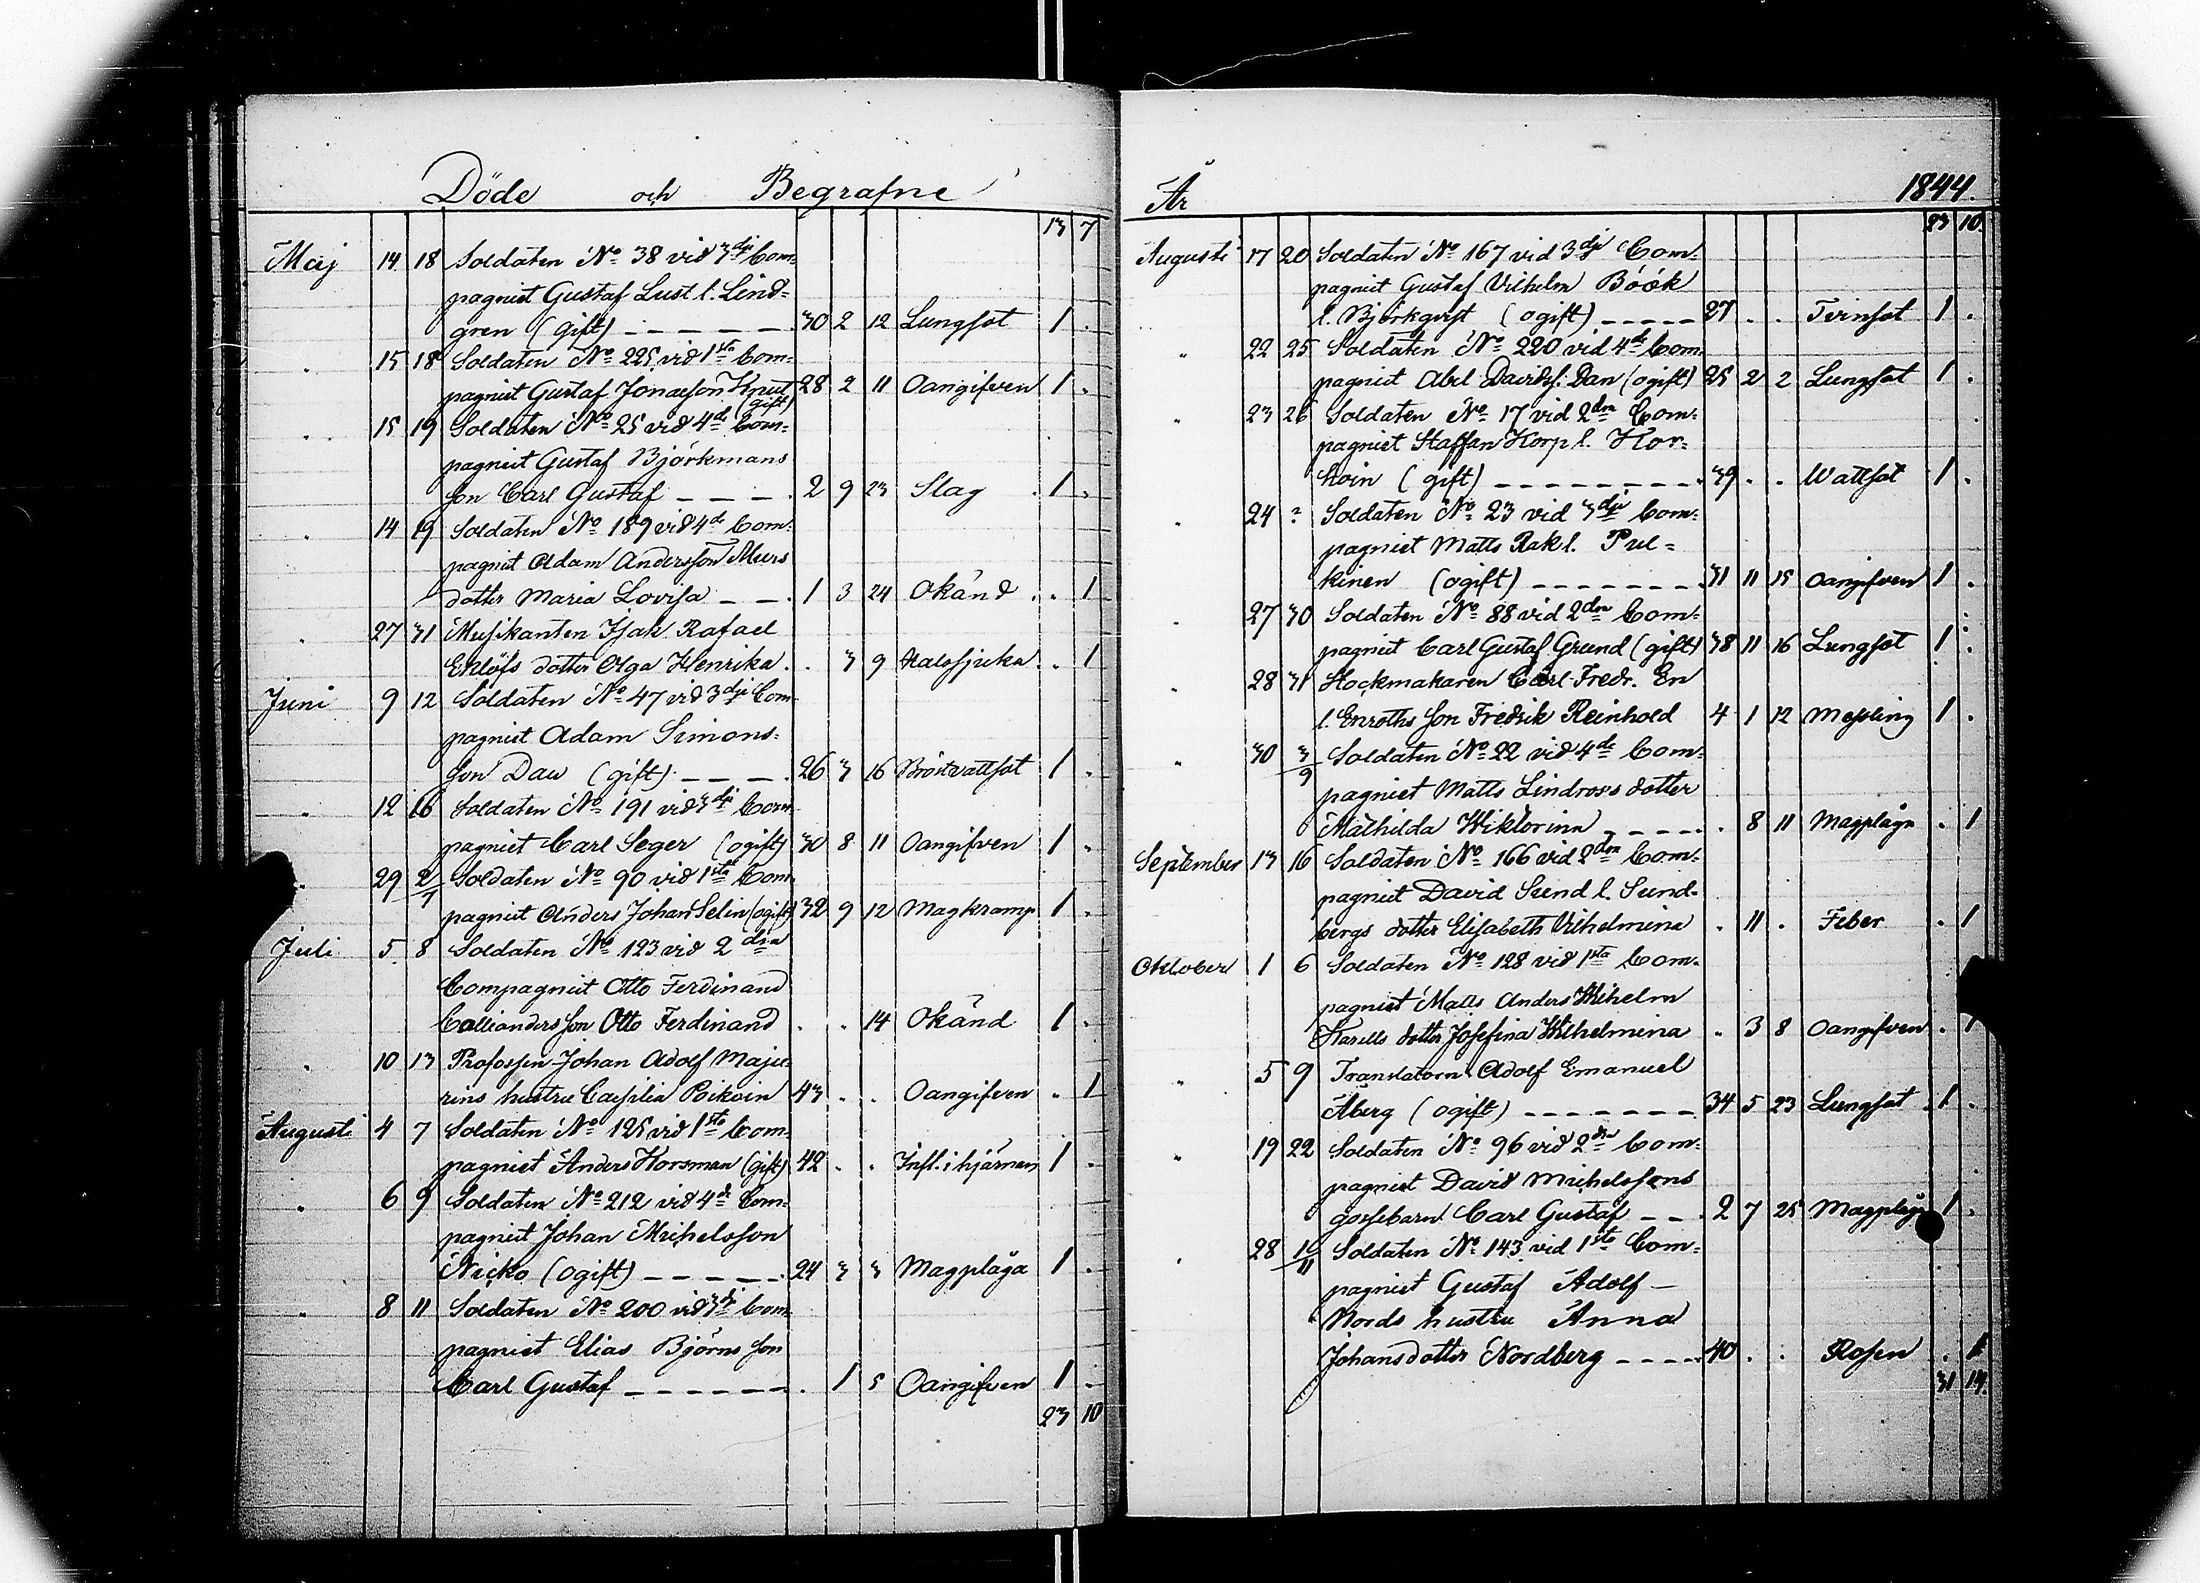 Döde och Begrafne
13 7
Maj 14 18 Soldaten No 38 vid 3dje Com-
pagniet Gustaf Lust l. Lind=
gren (gift) 30 2 12 Lungsot 1 .
" 15 18 Soldaten No 225 vid 1sta Com-
pagniet Gustaf Jonaeson Knut 28 2 11 Oangifven 1 .
(gift)
" 15 19 Soldaten No 25 vid 4de Com=
pagniet Gustaf Björkmans
son Carl Gustaf 2 9 23 Slag 1 .
" 14 19 Soldaten No 189 vid 4de Com-
pagniet Adam Andersson Murs
dotter Maria Lovisa 1 3 24 Okänd . 1
" 27 31 Musikanten Isak Rafael
Eklöfs dotter Olga Henrika . 3 9 Halssjuka . 1
Juni 9 12 Soldaten No 47 vid 3dje Com-
pagniet Adam Simons-
son Dau (gift) 26 3 16 Bröstvattsot 1 .
" 12 16 Soldaten No 191 vid 3dje Com-
pagniet Carl Seger (ogift) 30 8 11 Oangifven 1 .
" 29 2/7 Soldaten No 90 vid 1sta Com-
pagniet Anders Johan Selin (ogift) 32 9 12 Magkramp 1 .
Juli 5 8 Soldaten No 123 vid 2dra
Compagniet Otto Ferdinand
Callianders son Otto Ferdinand . . 14 Okänd 1 .
" 10 13 Profossen Johan Adolf Maju-
rins hustru Caesilia Poikoin 43 . . Oangifven . 1
Augusti 4 7 Soldaten No 125 vid 1sta Com-
pagniet Anders Korsman (gift) 42 . . Infl. i hjärnan 1 .
" 6 9 Soldaten No 212 vid 4de Com-
pagniet Johan Michelsson
Nicko (ogift) 24 3 3 Magplåga 1 .
" 8 11 Soldaten No 200 vid 3dje Com-
pagniet Elias Björns son
Carl Gustaf . 1 5 Oangifven 1 .
23 10
År 1844.
23 10.
Augusti 17 20 Soldaten No 167 vid 3dje Com-
pagniet Gustaf Vilhelm Böök
l. Björkqvist (ogift) 27 . . Tvinsot 1 .
" 22 25 Soldaten No 220 vid 4de Com-
pagniet Abel Davidss. Dan (ogift) 25 2 2 Lungsot 1 .
" 23 26 Soldaten No 17 vid 2dra Com-
pagniet Staffan Korp l. Kor-
hoin (gift) 39 . . Wattsot 1 .
" 24 ? Soldaten No 23 vid 3dje Com-
pagniet Matts Rak l. Pul=
kinen (ogift) 31 11 15 Oangifven 1 .
" 27 30 Soldaten No 88 vid 2dra Com-
pagniet Carl Gustaf Grund (gift) 38 11 16 Lungsot 1 .
" 28 31 Stockmakaren Carl Fredr. En
l. Enroths son Fredrik Reinhold 4 1 12 Messling 1 .
" 30 3/9 Soldaten No 22 vid 4de Com-
pagniet Matts Lindroos dotter
Mathilda Wiktorina . 8 11 Magplåga . 1
September 13 16 Soldaten No 166 vid 2dra Com-
pagniet David Sund l. Sund-
bergs dotter Elisabeth Vilhelmina . 11 . Feber . 1
Oktober 1 6 Soldaten No 128 vid 1sta Com-
pagniet Matts Anders Wilhelm
dotter Josefina Wilhelmina . 3 8 Oangifven . 1
" 5 9 Translatorn Adolf Emanuel
Åberg (ogift) 34 5 23 Lungsot 1 .
" 19 22 Soldaten No 96 vid 2dra Com-
pagniet David Michelssons
gossebarn Carl Gustaf 2 7 25 Magplåga 1 .
" 28 Soldaten No 143 vid 1sta Com-
pagniet Gustaf Adolf
Nords hustru Anna
Johansdotter Nordberg 40 . . Rosen . 1
31 14.